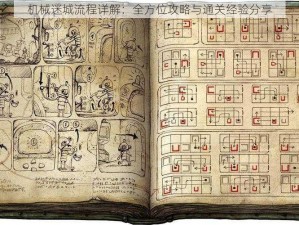 机械迷城流程详解：全方位攻略与通关经验分享